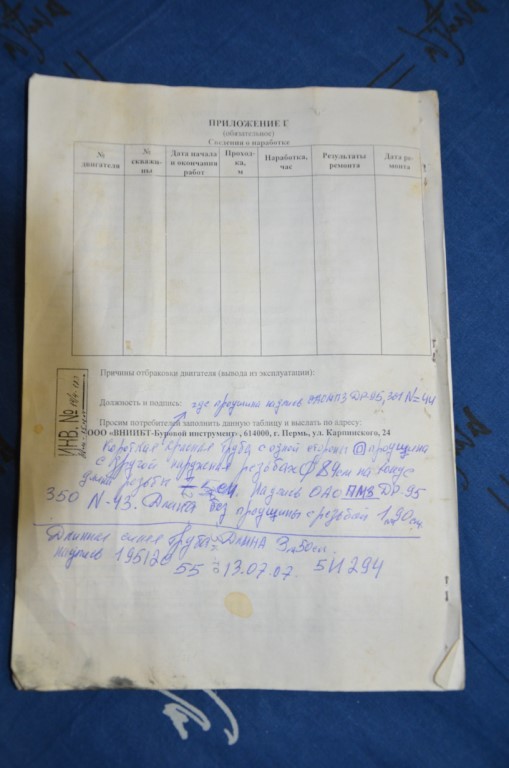 ПРИЛОЖЕНИЕ Г
(обязательное)
Сведения о наработке
№ двигателя
№ скважи-ны
Дата начала и окончания работ
Проход-ка, м
Наработка, час
Результаты ремонта
Дата ре-монта
Причины отбраковки двигателя (вывода из эксплуатации):
ИНВ. №
Должность и подпись: где надпись ДР-95, N=44
Просим потребителя заполнить данную таблицу и выслать по адресу:
ООО «ВНИИБТ-Буровой инструмент», 614000, г. Пермь, ул. Карпинского, 24
Короткая труба с одной стороны
с другой наружная резьба на конус
резьбы Надпись ОАО ПМЗ ДР-95
350 N-43. Длина без с резьбой 1 м 90 см.
Длинная синяя труба ДЛИНА 3 м 50 см.
надпись 195120
55 13.07.07. 5И 294